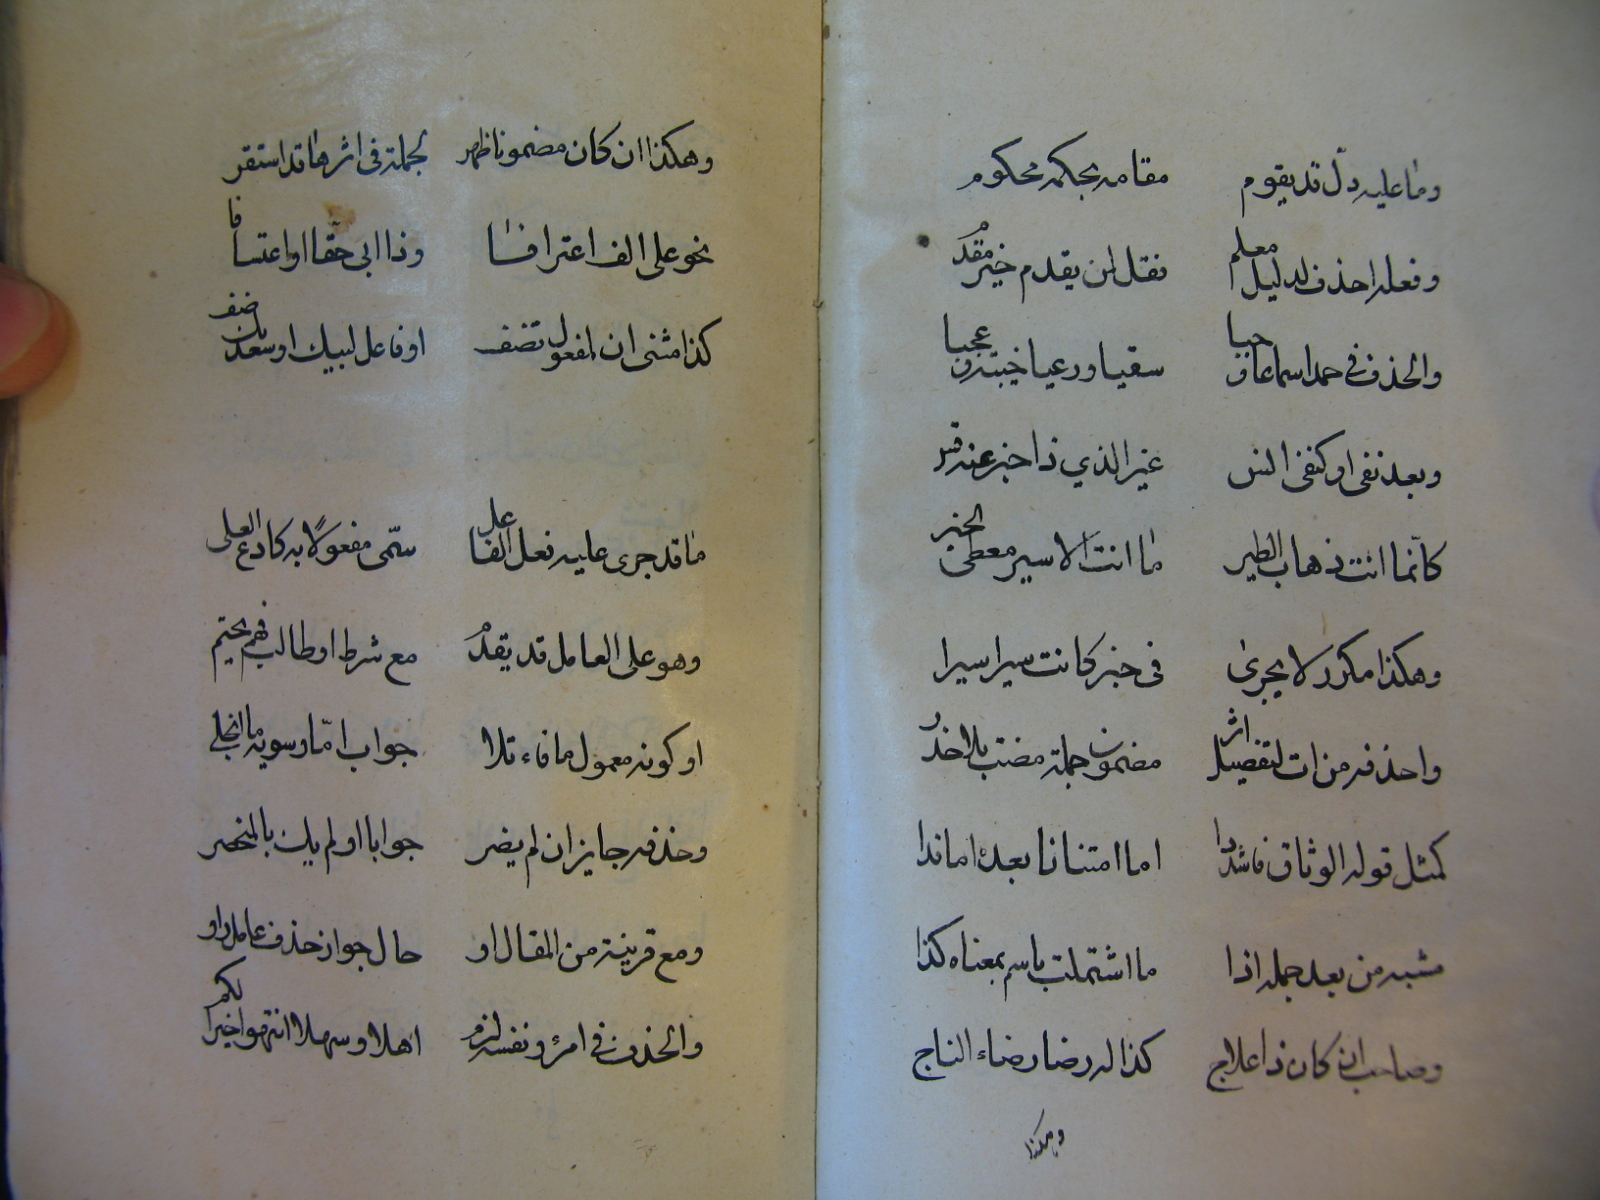 وما عليه دلّ قد يقوم مقامه بحكمه محكوم
وفعله احذف لدليل معلم فقل لمن يقدم خير مقدم
والحذف في حمدا سماعا وحيا سقيا ورعيا خيبة وعجبا
وبعد نفي او كنفي البس غير الذي ذا خبر عنه
كانّما انت ذهاب الطير ما انت الا سير معطى الخير
وهكذا مكرر لا يجرى في خبر كانت سيرا سيرا
واحذفه من ات لتفصيل اثر مضمون جملة
كمثل قوله الوثاق فاشددوا اما امتنانا بعد اما فدا
مشبه من بعد جملة اذا ما اشتملت باسم بمعناه كذا
وصاحب ان كان ذا علاج كذا له رضا رضاء الناج
وهكذا
وهكذا ان كان مضمونا ظهر لجملة في اثرها قد استقر
نحو على الف اعترافا وذا ابي حقا او اعتسافا
كذا مثنى ان لمفعول تضف او فاعل لبيك او سعديك ضف
ما قد جرى عليه فعل الفاعل سمّى مفعولًا به كادع العلى
وهو على العامل قد يقدم مع شرط او طالب فهم يحتم
او كونه معمول ما فاء تلا جواب امّا وسويه ما انجلى
وحذفه جايز ان لم يضر جوابا او لم يك بالمنحصر
ومع قرينة من المقال او حال جواز حذف عامل راو
والحذف في امرؤ ونفسه لزم اهلا وسهلا انتهوا خيرا لكم